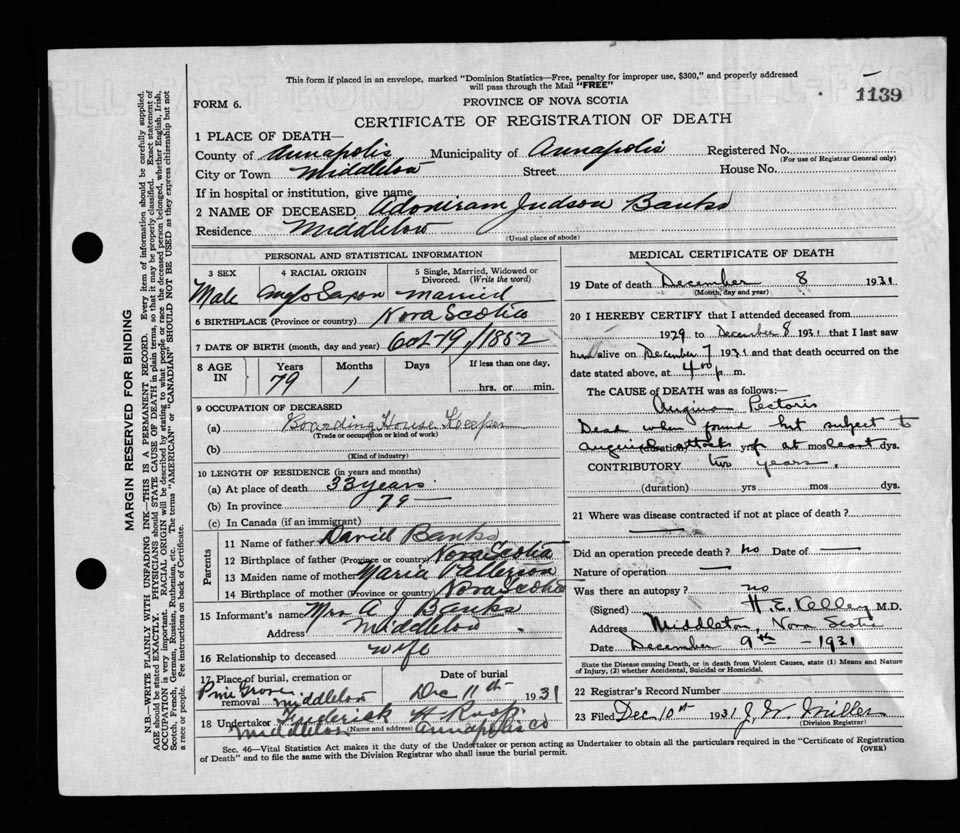 This form if placed in an envelope, marked "Dominion Statistics—Free, penalty for improper use, $300," and properly addressed
will pass through the Mail "FREE"
1139
FORM 6.
PROVINCE OF NOVA SCOTIA
CERTIFICATE OF REGISTRATION OF DEATH
1 PLACE OF DEATH—
County of Annapolis Municipality of Annapolis Registered No.
(For use of Registrar General only)
City or Town Middleton Street House No.
If in hospital or institution, give name
2 NAME OF DECEASED Adoniram Judson Banks
Residence Middleton
(Usual place of abode)
PERSONAL AND STATISTICAL INFORMATION
3 SEX 4 RACIAL ORIGIN 5 Single, Married, Widowed or Divorced. (Write the word)
Male Anglo Saxon Married
6 BIRTHPLACE (Province or country) Nova Scotia
7 DATE OF BIRTH (month, day and year) Oct 19, 1852
8 AGE IN Years Months Days If less than one day,
79 1 hrs. or min.
9 OCCUPATION OF DECEASED
(a) Boarding House Keeper
(Trade or occupation or kind of work)
(b)
(Kind of industry)
10 LENGTH OF RESIDENCE (in years and months)
(a) At place of death 33 years.
(b) In province 79 —
(c) In Canada (if an immigrant)
Parents
11 Name of father David Banks
12 Birthplace of father (Province or country) Nova Scotia
13 Maiden name of mother Maria
14 Birthplace of mother (Province or country) Nova Scotia
15 Informant's name Mrs A J Banks
Address Middleton
16 Relationship to deceased wife
17 Place of burial, cremation or removal Date of burial
Pine Grove Middleton Dec 11th 1931
18 Undertaker Frederick
(Name and address)
Middleton Annapolis Co
MEDICAL CERTIFICATE OF DEATH
19 Date of death December 8 1931
(Month, day and year)
20 I HEREBY CERTIFY that I attended deceased from
1929 to December 8 1931 that I last saw
him alive on December 7 1931 and that death occurred on the
date stated above, at 4:00 p. m.
The CAUSE of DEATH was as follows:—
Angina Pectoris
Dead when found but subject to
anginal attacks (duration) yrs for at mos least dys.
CONTRIBUTORY two years.
(duration) yrs mos dys.
21 Where was disease contracted if not at place of death?
Did an operation precede death? no Date of —
Nature of operation —
Was there an autopsy? no
(Signed) H. E. Kelley M.D.
Address Middleton, Nova Scotia
Date December 9th — 1931
State the Disease causing Death, or in death from Violent Causes, state (1) Means and
Nature of Injury, (2) whether Accidental, Suicidal or Homicidal.
22 Registrar's Record Number
23 Filed Dec 10th 1931 J. W. Miller
(Division Registrar)
Sec. 46—Vital Statistics Act makes it the duty of the Undertaker or person acting as Undertaker to obtain all the particulars required in the "Certificate of Registration
of Death" and to file the same with the Division Registrar who shall issue the burial permit.
(OVER)
MARGIN RESERVED FOR BINDING
N.B.—WRITE PLAINLY WITH UNFADING INK—THIS IS A PERMANENT RECORD. Every item of information should be carefully supplied.
AGE should be stated EXACTLY. PHYSICIANS should STATE CAUSE OF DEATH in plain terms, so that it may be properly classified. Exact statement of
OCCUPATION is very important. RACIAL ORIGIN will be described by stating to what people or race the deceased person belonged, whether English, Irish,
Scotch, French, German, Russian, Ruthenian, etc. The terms "AMERICAN" or "CANADIAN" SHOULD NOT BE USED as they express citizenship but not
a race or people. See instructions on back of Certificate.